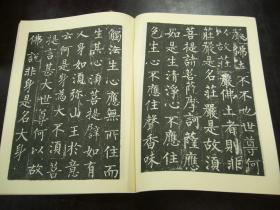 嚴佛土不不也世尊何
以故莊嚴佛土者則非
莊嚴是名莊嚴是故須
菩提諸菩薩摩訶薩應
如是生清淨心不應住
色生心不應住聲香味
觸法生心應無所住而
生其心須菩提譬如有
人身如須弥山王於意
云何是身為大不須菩
提言甚大世尊何以故
佛說非身是名大身